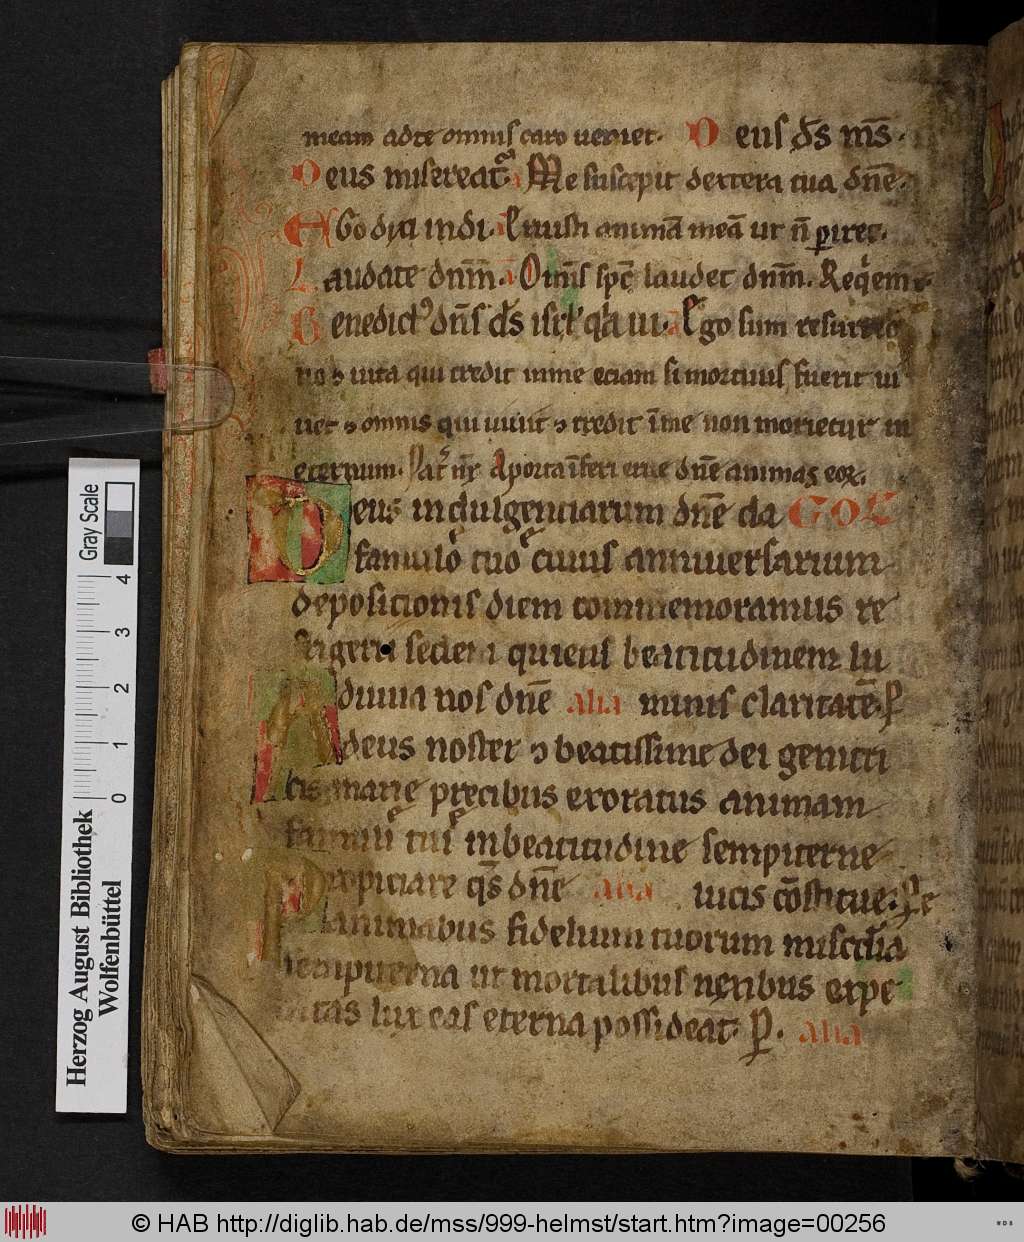 meam adte omnis caro veniet. Deus ds̄ ms̄.
Deus misereat᷑. a Me suscepit dextera tua dn̄e.
EGo dixi indi. a Eruisti animā meā ut n̄ ꝑiret.
Laudate dn̄m̄. a Om̄is sp̄c laudet dn̄m̄. Reqͥem
Benedictꝰ dn̄s ds̄ isrl̄ qͥa ui. a Ego sum resurrec
tio ⁊ uita qui credit inme etiam si mortuus fuerit ui
uet ⁊ omnis qui uiuit ⁊ credit īme non morietur in
eternum. Pat᷑ nr̄. A porta īferi erue dn̄e animas eoꝝ.
Deus indulgentiarum dn̄e da COL
famulo tuo cuius anniuersarium
depositionis diem commemoramus re
frigerii sedem quietis beatitudinem lu
Adiuua nos dn̄e alia minis claritatē. P
deus noster ⁊ beatissime dei genitri
cis marię pręcibus exoratus animam
famuli tui inbeatitudine sempiterne
Propitiare qs̄ dn̄e alia lucis cōstitue. Pe
animabus fidelium tuorum misc̄dia
sempiterna ut mortalibus nexibus expe
ditas lux eas eterna possideat. P. alia
Gray Scale
4
3
2
1
0
Herzog August Bibliothek
Wolfenbüttel
© HAB http://diglib.hab.de/mss/999-helmst/start.htm?image=00256